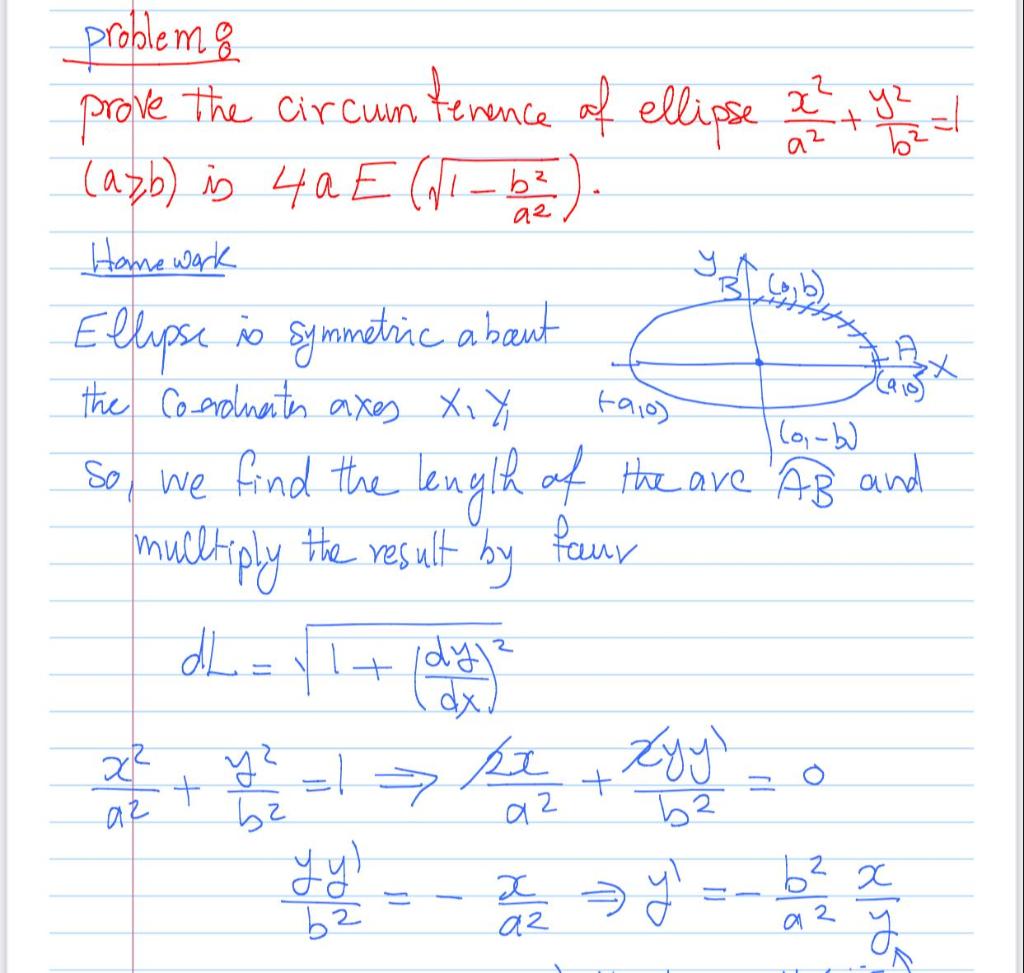 problem 8
prove the circumference of ellipse x²/a² + y²/b² = 1
(a≥b) is 4aE(√(1 - b²/a²)).
Homework
y
B (0,b)
Ellipse is symmetric about
A
X
(a,0)
the Co-ordinates axes X, Y,
(-a,0)
(0,-b)
So, we find the length of the arc AB and
multiply the result by four
dL = √(1 + (dy/dx)²)
x²/a² + y²/b² = 1 ⇒ 2x/a² + 2yy'/b² = 0
yy'/b² = - x/a² ⇒ y' = - b²/a² x/y